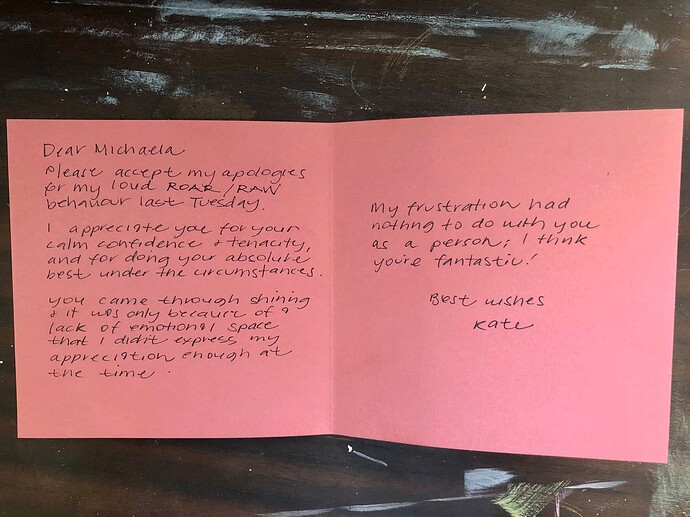 Dear Michaela
Please accept my apologies
for my loud ROAR/RAW
behaviour last Tuesday.
I appreciate you for your
calm confidence + tenacity,
and for doing your absolute
best under the circumstances.
you came through shining
& it was only because of a
lack of emotional space
that I didn't express my
appreciation enough at
the time.
My frustration had
nothing to do with you
as a person; I think
you're fantastic!
Best wishes
Kate